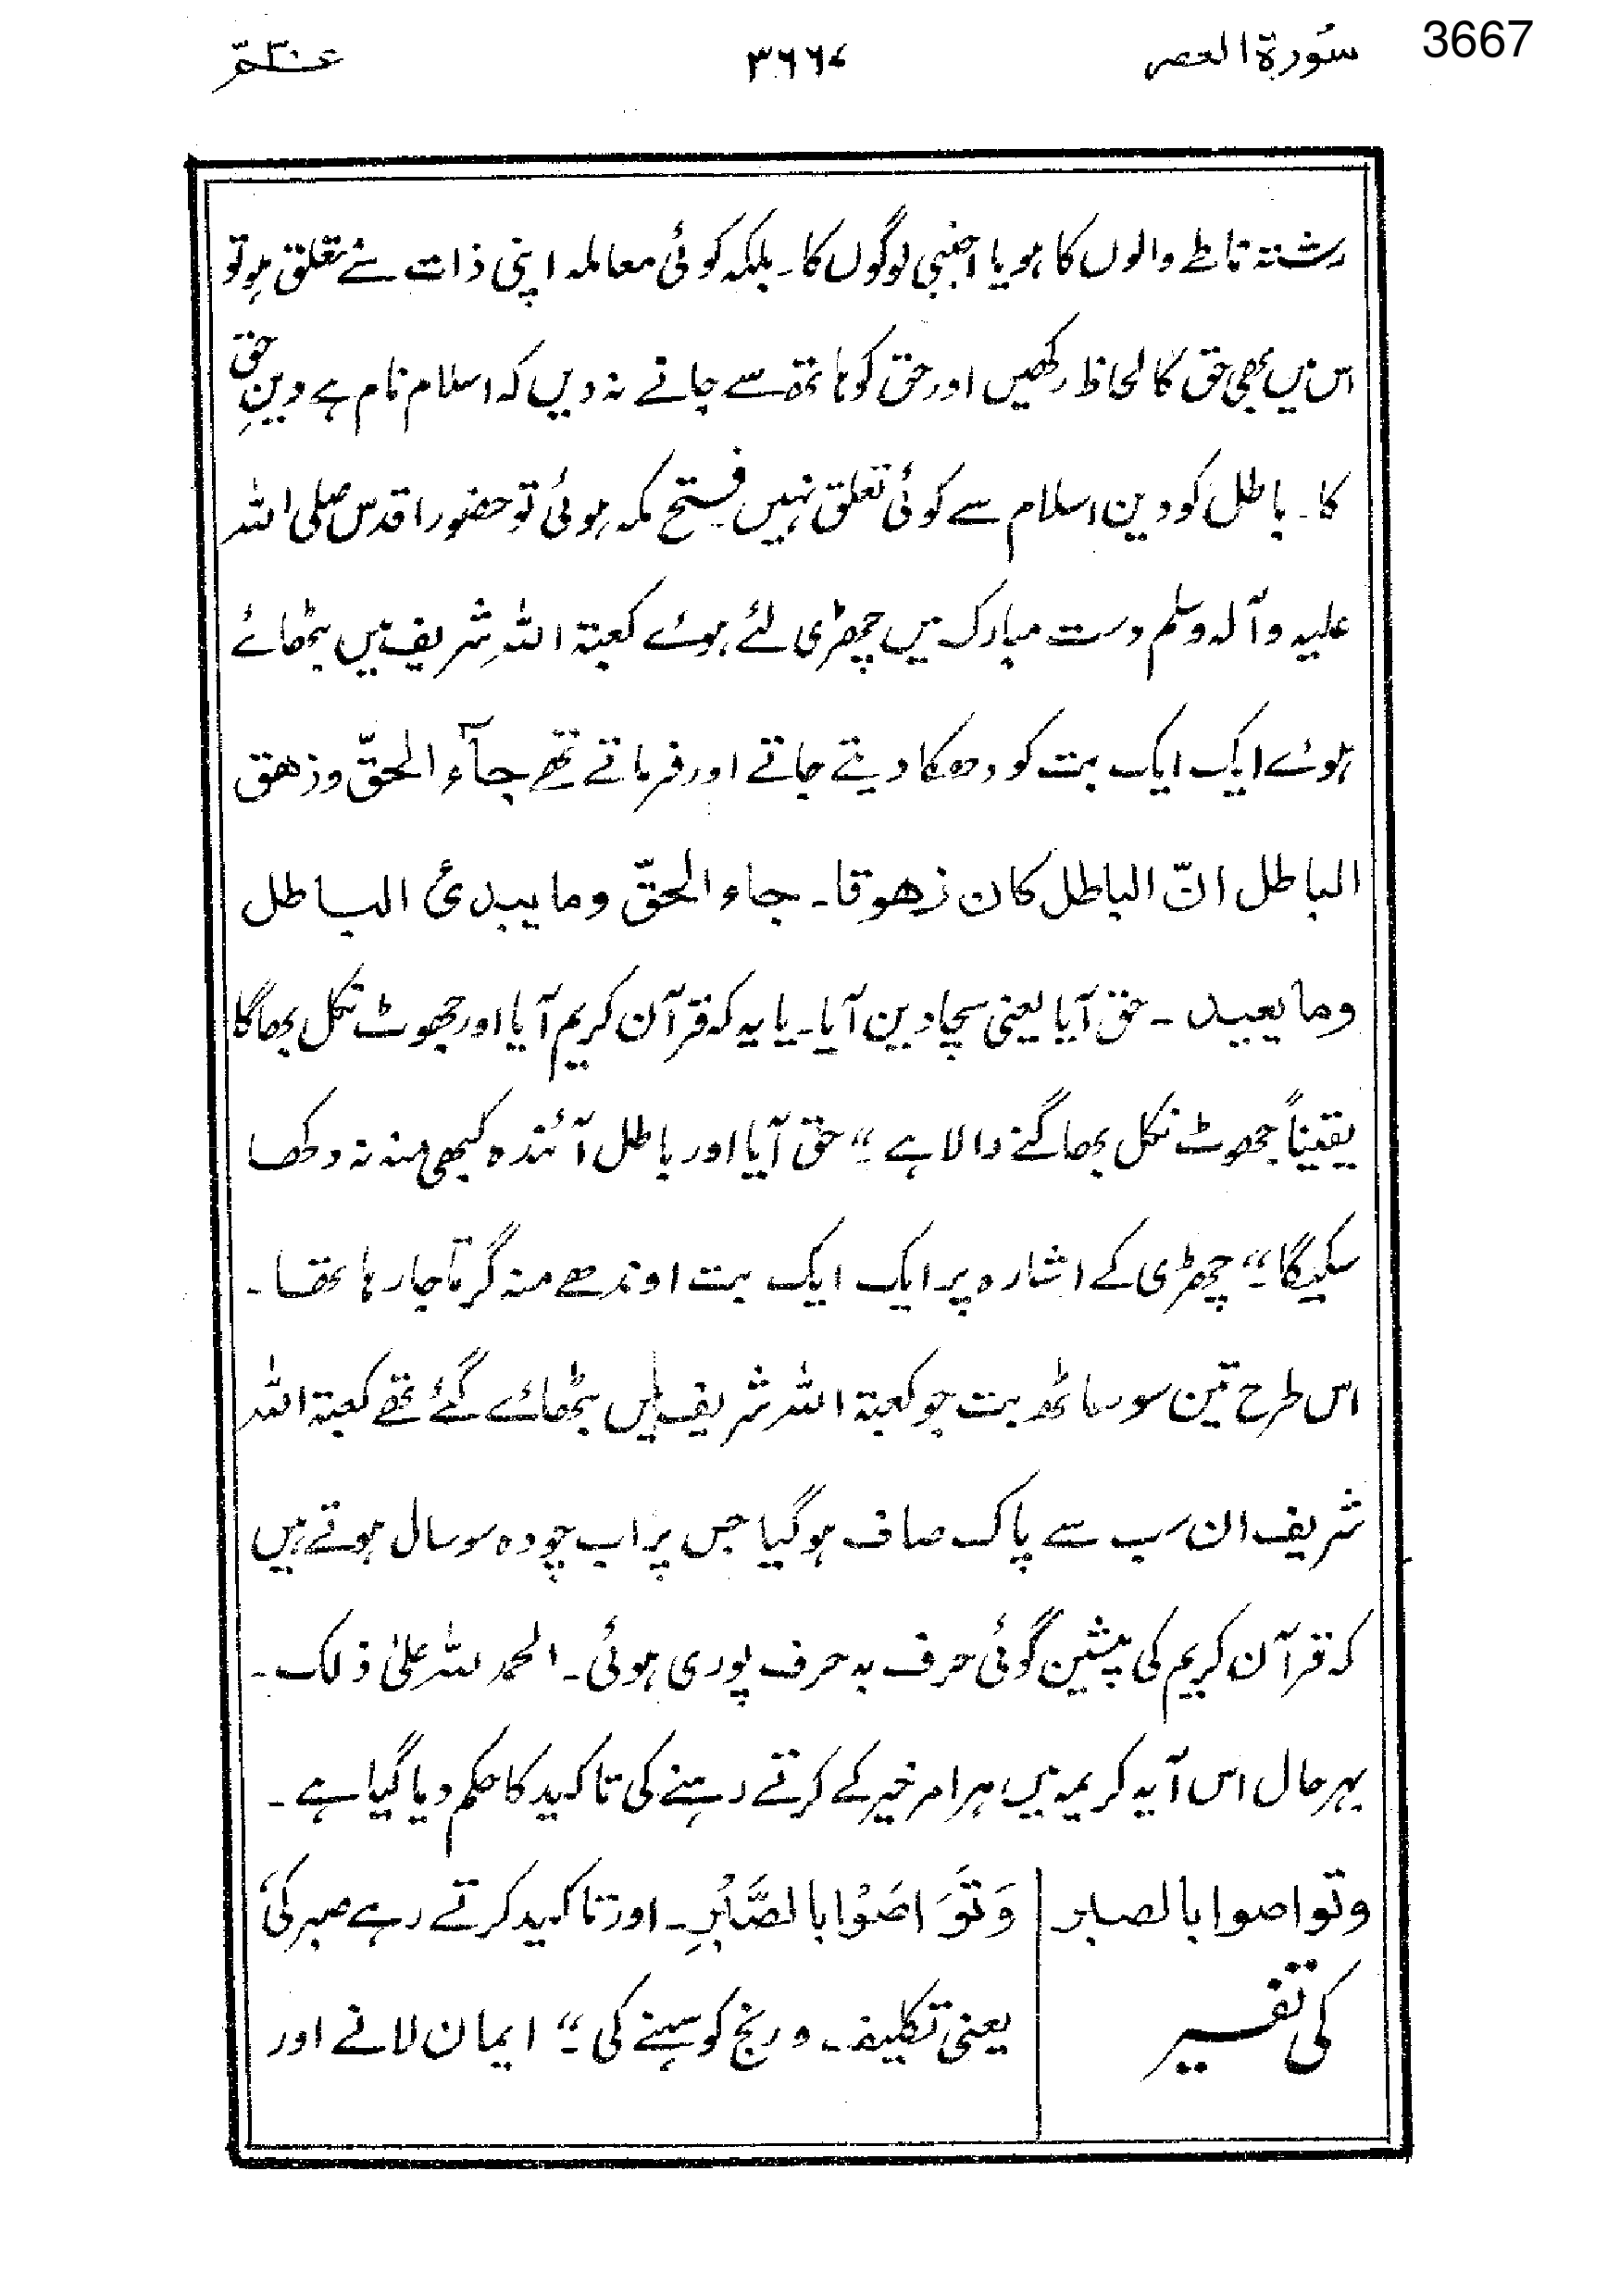 3667
سُورۃ العصر ۳۶۶۷ عمّ ۳۰
رشتہ ناطے والوں کا ہو یا اجنبی لوگوں کا۔ بلکہ کوئی معاملہ اپنی ذات سے متعلق ہو تو
اس میں بھی حق کا لحاظ رکھیں اور حق کو ہاتھ سے جانے نہ دیں کہ اسلام نام ہے دینِ حق
کا۔ باطل کو دین اسلام سے کوئی تعلق نہیں۔ فتح مکہ ہوئی تو حضور اقدس صلی اللہ
علیہ و آلہ وسلم دست مبارک میں چھڑی لئے ہوئے کعبۃ اللہ شریف میں بٹھائے
ہوئے ایک ایک بت کو دھکا دیتے جاتے اور فرماتے تھے جآء الحقّ وزھق
الباطل انّ الباطل کان زھوقا۔ جاء الحقّ وما یبدیٔ الباطل
وما یعید۔ حق آیا یعنی سچا دین آیا۔ یا یہ کہ قرآن کریم آیا اور جھوٹ نکل بھاگا
یقیناً جھوٹ نکل بھاگنے والا ہے۔“ حق آیا اور باطل آئندہ کبھی منہ نہ دکھا
سکیگا۔“ چھڑی کے اشارہ پر ایک ایک بت اوندھے منہ گرتا جا رہا تھا۔
اس طرح تین سو ساٹھ بت جو کعبۃ اللہ شریف میں بٹھائے گئے تھے کعبۃ اللہ
شریف ان سب سے پاک صاف ہو گیا جس پر اب چودہ سو سال ہوتے ہیں
کہ قرآن کریم کی پیشین گوئی حرف بہ حرف پوری ہوئی۔ الحمد للہ علیٰ ذلک۔
بہر حال اس آیہ کریمہ میں ہر امر خیر کے کرتے رہنے کی تاکید کا حکم دیا گیا ہے۔
وتواصوا بالصبر
کی تفسیر
وَتَوَاصَوْا بِالصَّبْرِ۔ اور تاکید کرتے رہے صبر کی
یعنی تکلیف و رنج کو سہنے کی۔“ ایمان لانے اور